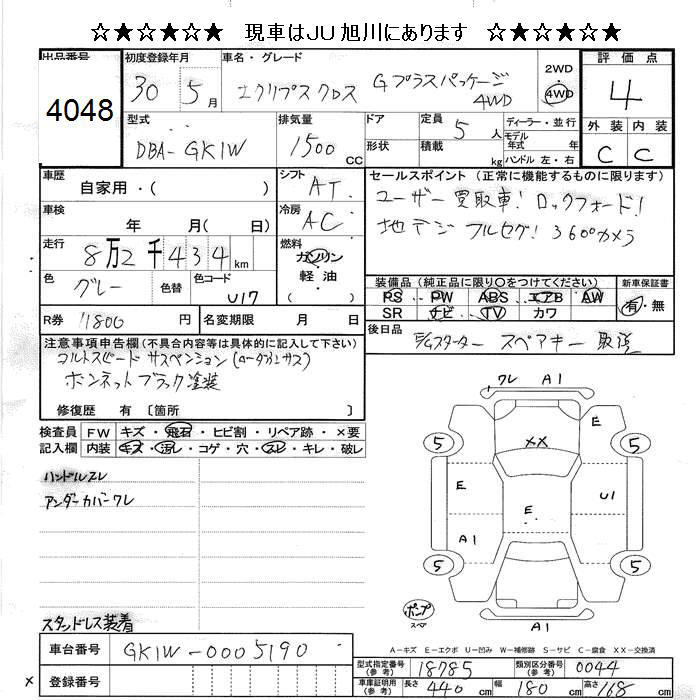 ☆★☆★☆ 現車はJU旭川にあります ☆★☆★☆
出品番号 初度登録年月 車名・グレード 2WD 評価点
4048 30 5月 エクリプスクロス Gプラスパッケージ 4WD 4WD 4
型式 排気量 ドア 定員 ディーラー・並行 外装 内装
DBA-GK1W 1500CC 5人 モデル年式 年
形状 積載 kg ハンドル 左・右 C C
車歴 シフト セールスポイント (正常に機能するものに限ります)
自家用・( ) AT ユーザー買取車! ロックフォード!
車検 冷房 地デジ フルセグ! 360°カメラ
年 月( 日) AC
走行 燃料
8万2千434km ガソリン
色 色替 色コード 軽油 装備品 (純正品に限り○をつけてください) 新車保証書
グレー U17 ( ) PS ・ PW ・ ABS ・ エアB ・ AW 有・無
SR ナビ ・ TV ・ カワ
R券 11800円 名変期限 月 日 後日品
注意事項申告欄(不具合内容等は具体的に記入して下さい) スペアキー
サスペンション
ボンネットブラック塗装
修復歴 有 〔箇所 〕
クレ A1
検査員 FW キズ ・ 飛石 ・ ヒビ割 ・ リペア跡 ・ ×要
記入欄 内装 キズ ・ 汚レ ・ コゲ ・ 穴 ・ スレ ・ キレ ・ 破レ
E
5 XX 5
ハンドルスレ
アンダーカバークレ
E U1
E
A1
5 5
ポンプ
スペア
A1
スタンドレス装着
A－キズ E－エクボ U－凹み W－補修跡 S－サビ C－腐食 XX－交換済
車台番号 GK1W-0005190
型式指定番号(参考) 18785 類別区分番号(参考) 0044
× 登録番号 車庫証明用(参考) 長さ 440cm 幅 180cm 高さ 168cm